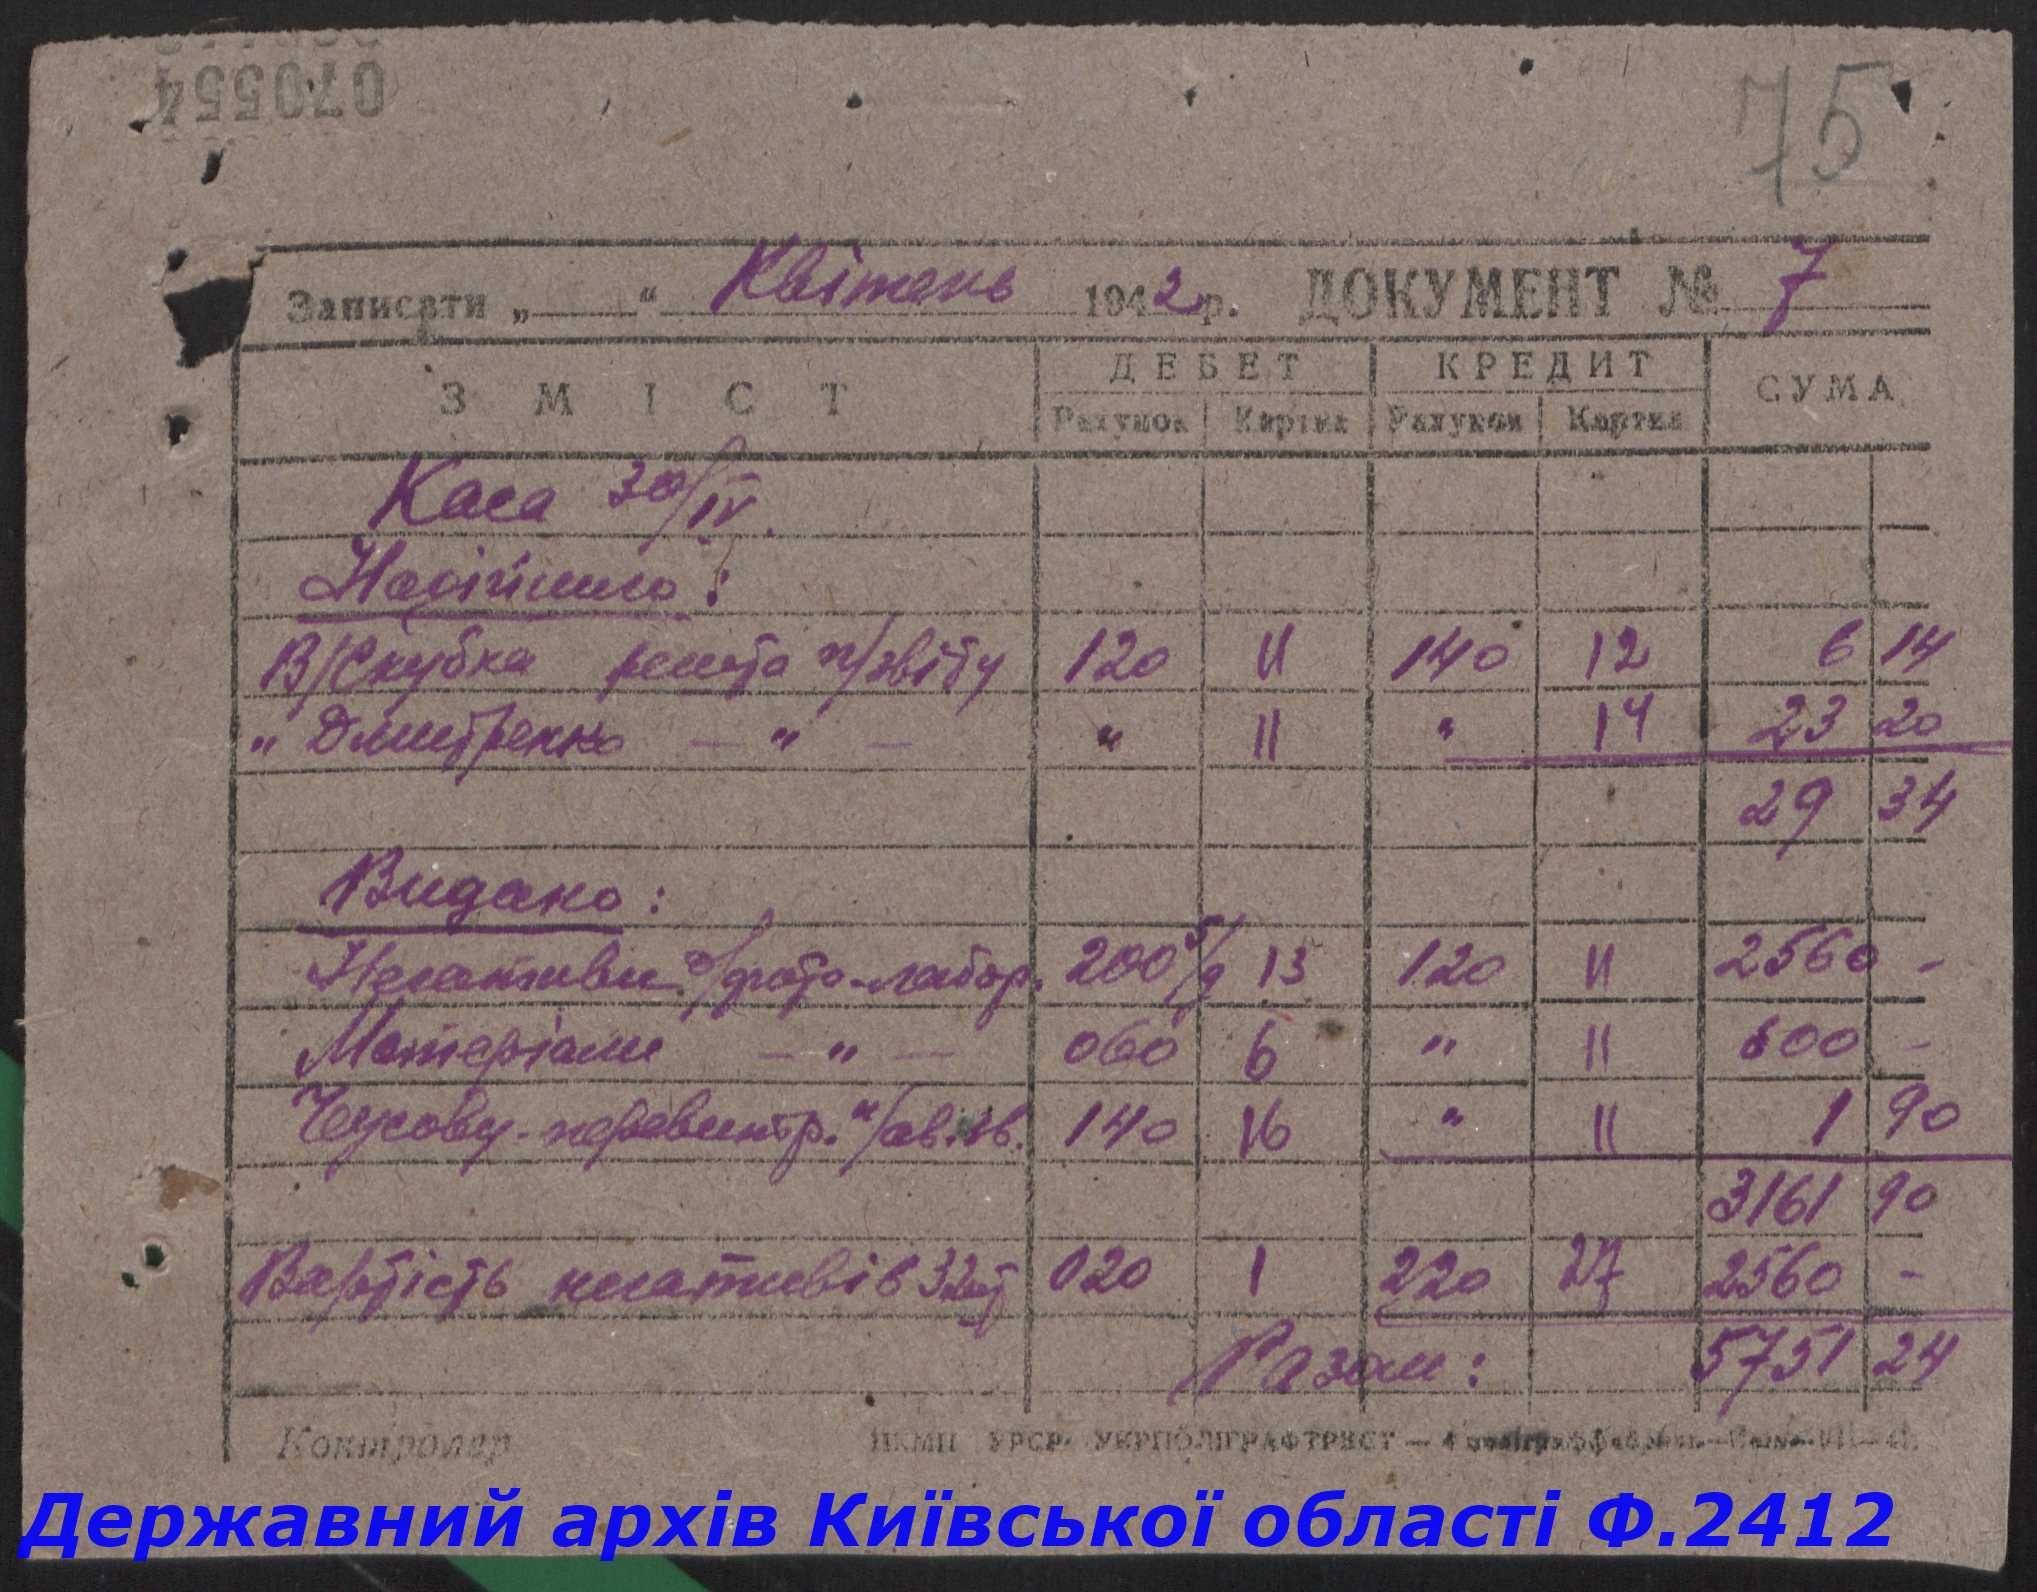 070554
75
Записати „ “ Квітень 1942 р. ДОКУМЕНТ № 7
ЗМІСТ ДЕБЕТ КРЕДИТ СУМА
Рахунок Картка Рахунок Картка
Каса 30/IV.
Надійшло:
В/Скубка решта п/звіту 120 11 140 12 6 14
" Дмитренко — " — " 11 " 14 23 20
29 34
Видано:
Негативи фото-лабор. 200 13 120 11 2560 -
Матеріали — " — 060 6 " 11 600 -
140 16 " 11 1 90
3161 90
Вартість негативів 32шт 020 1 220 27 2560 -
Разом: 5751 24
Контролер НКМП УРСР УКРПОЛІГРАФТРЕСТ —
Державний архів Київської області Ф.2412